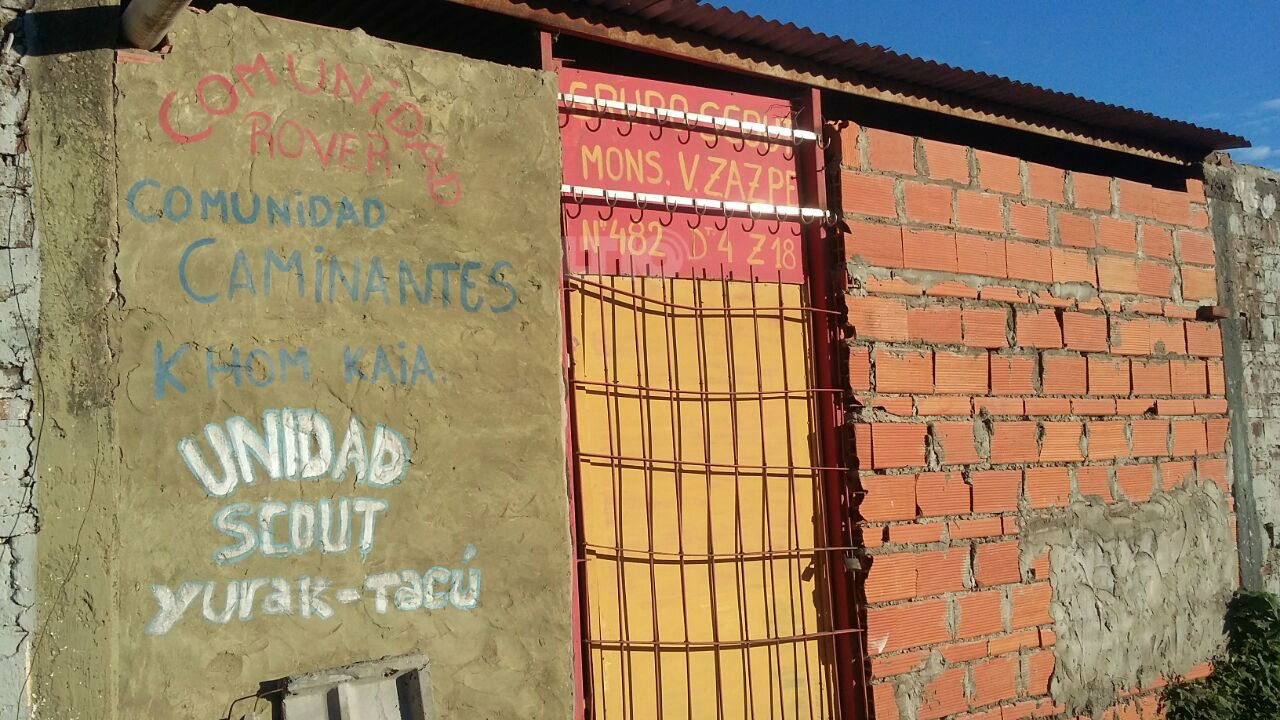 COMUNIDAD
ROVER
COMUNIDAD
CAMINANTES
KHOM KAIA.
UNIDAD
SCOUT
YURAK-TACÚ
GRUPO SCOUT
MONS. V. ZAZPE
N° 482 DTO 4 Z 18